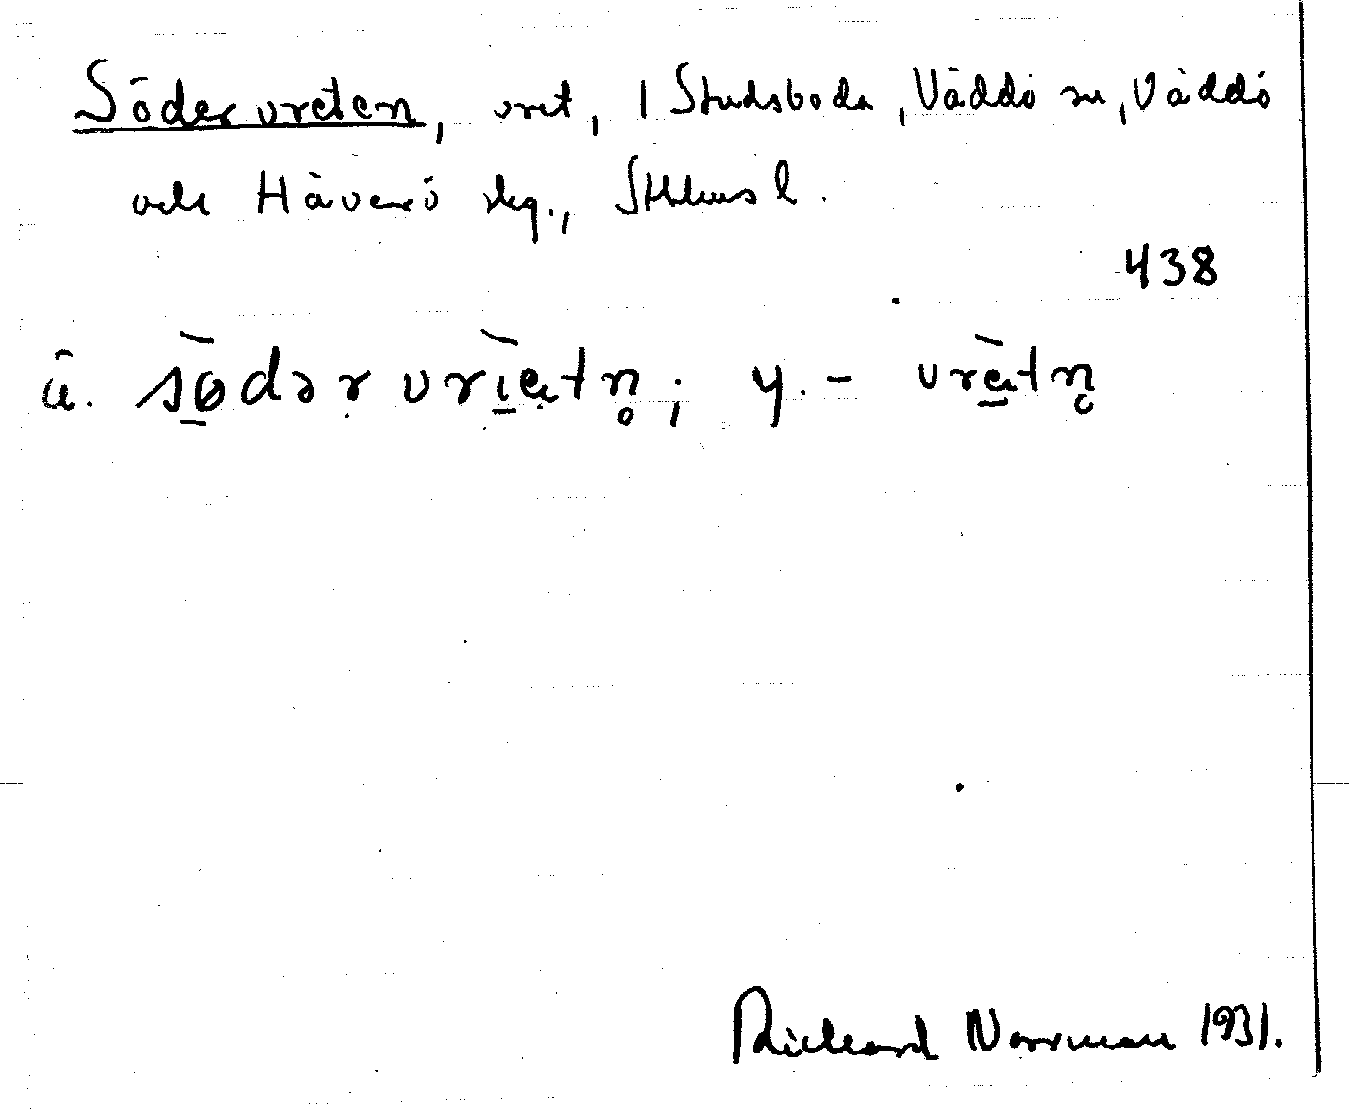 Södervreten, vret, 1 Studsboda, Väddö sn, Väddö
och Häverö skg., Sthlms l.
438
ä. sö̀dər vrìetn̥; y. - vrètn̥
Richard Norrman 1931.